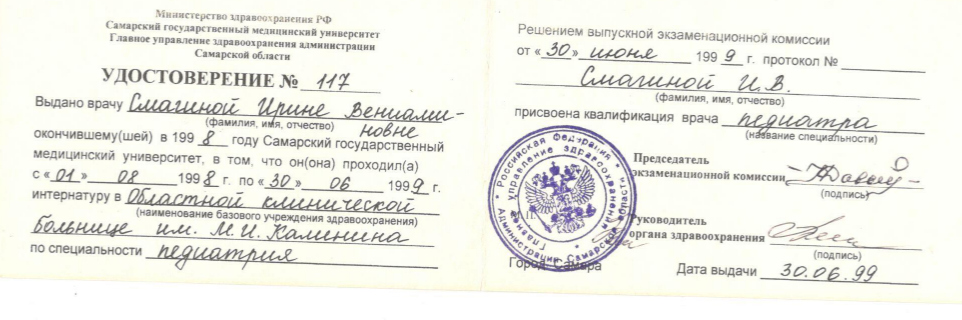 Министерство здравоохранения РФ
Самарский государственный медицинский университет
Главное управление здравоохранения администрации
Самарской области
УДОСТОВЕРЕНИЕ № 117
Выдано врачу Смагиной Ирине Вениами-
(фамилия, имя, отчество) новне
окончившему(шей) в 199 8 году Самарский государственный
медицинский университет, в том, что он(она) проходил(а)
с «01» 08 199 8 г. по «30» 06 199 9 г.
интернатуру в Областной клинической
(наименование базового учреждения здравоохранения)
больнице им. М.И. Калинина
по специальности педиатрия
Решением выпускной экзаменационной комиссии
от «30» июня 199 9 г. протокол №
Смагиной И.В.
(фамилия, имя, отчество)
присвоена квалификация врача педиатра
(название специальности)
Председатель
экзаменационной комиссии
(подпись)
Руководитель
органа здравоохранения
(подпись)
Город Самара
Дата выдачи 30.06.99
Российская Федерация
Администрации Самарской области
Главное управление здравоохранения